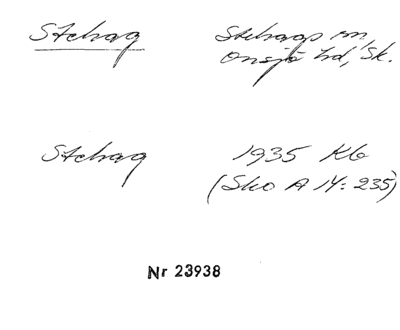 Stehag Stehags sn,
Onsjö hd, Sk.
Stehag 1935 Kb
(Sko A 14: 235)
Nr 23938